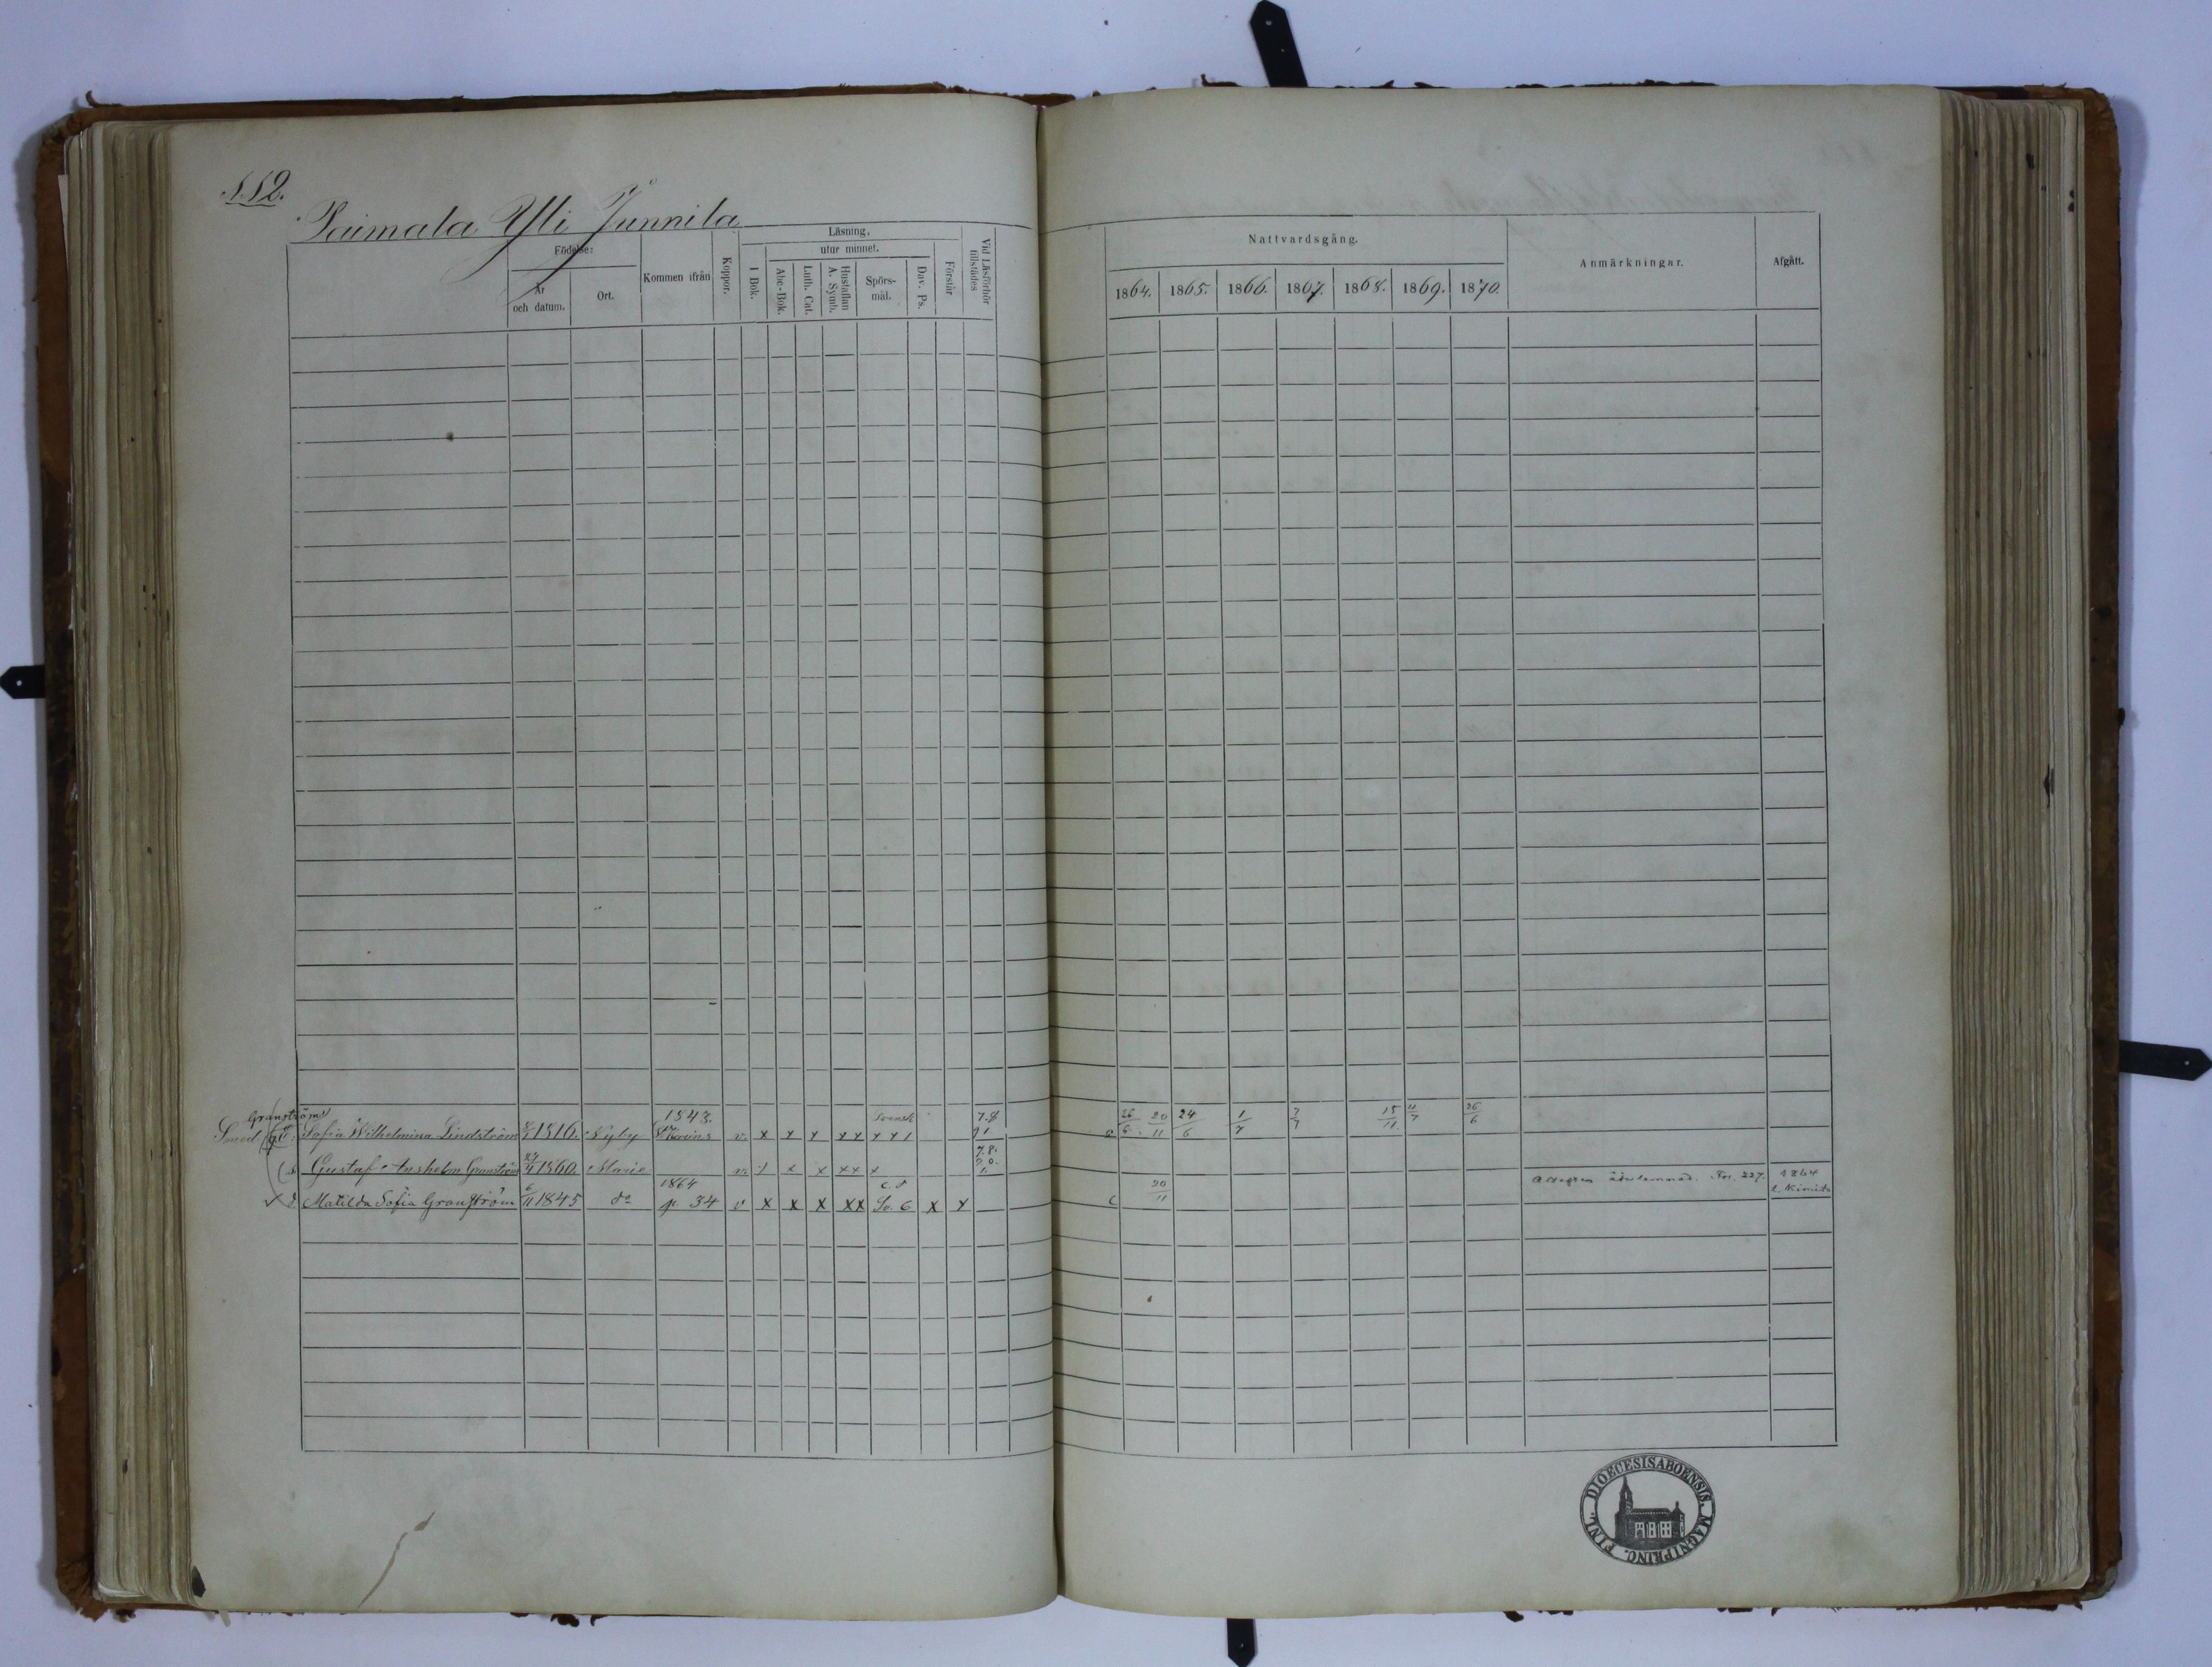 112.
Paimala Yli Junnila
Födelse:
År
och datum.
Ort.
Kommen ifrån
Koppor.
Läsning.
utur minnet.
I Bok.
Abc-Bok.
Luth. Cat.
Hustaflan
A. Symb.
Spörs-
mål.
Dav. Ps.
Förstår
Vid Läsförhör
tillstädes
Nattvardsgång.
1864. 1865. 1866. 1867. 1868. 1869. 1870.
Anmärkningar.
Afgått.
Granströms
1843. Svensk 7.8
Smed Sofia Wilhelmina Lindström 1816. Nyby v. x x x x x x x 1 91. 26/6. 20/11 24/6 1/7 7/7 15/11. 11/7 26/6
7.8.
s. Gustaf Anshelm Granström 27/4 1860. Marie x x x x x
1864
d. Matilda Sofia Granström 6/11 1845 do p. 34 v x x x x x Sv. 6 x x c 20/11 Fr. 227. 1864
Kimito
DIOECESIS ABOENSIS. MAGNI PRINC. FINL.